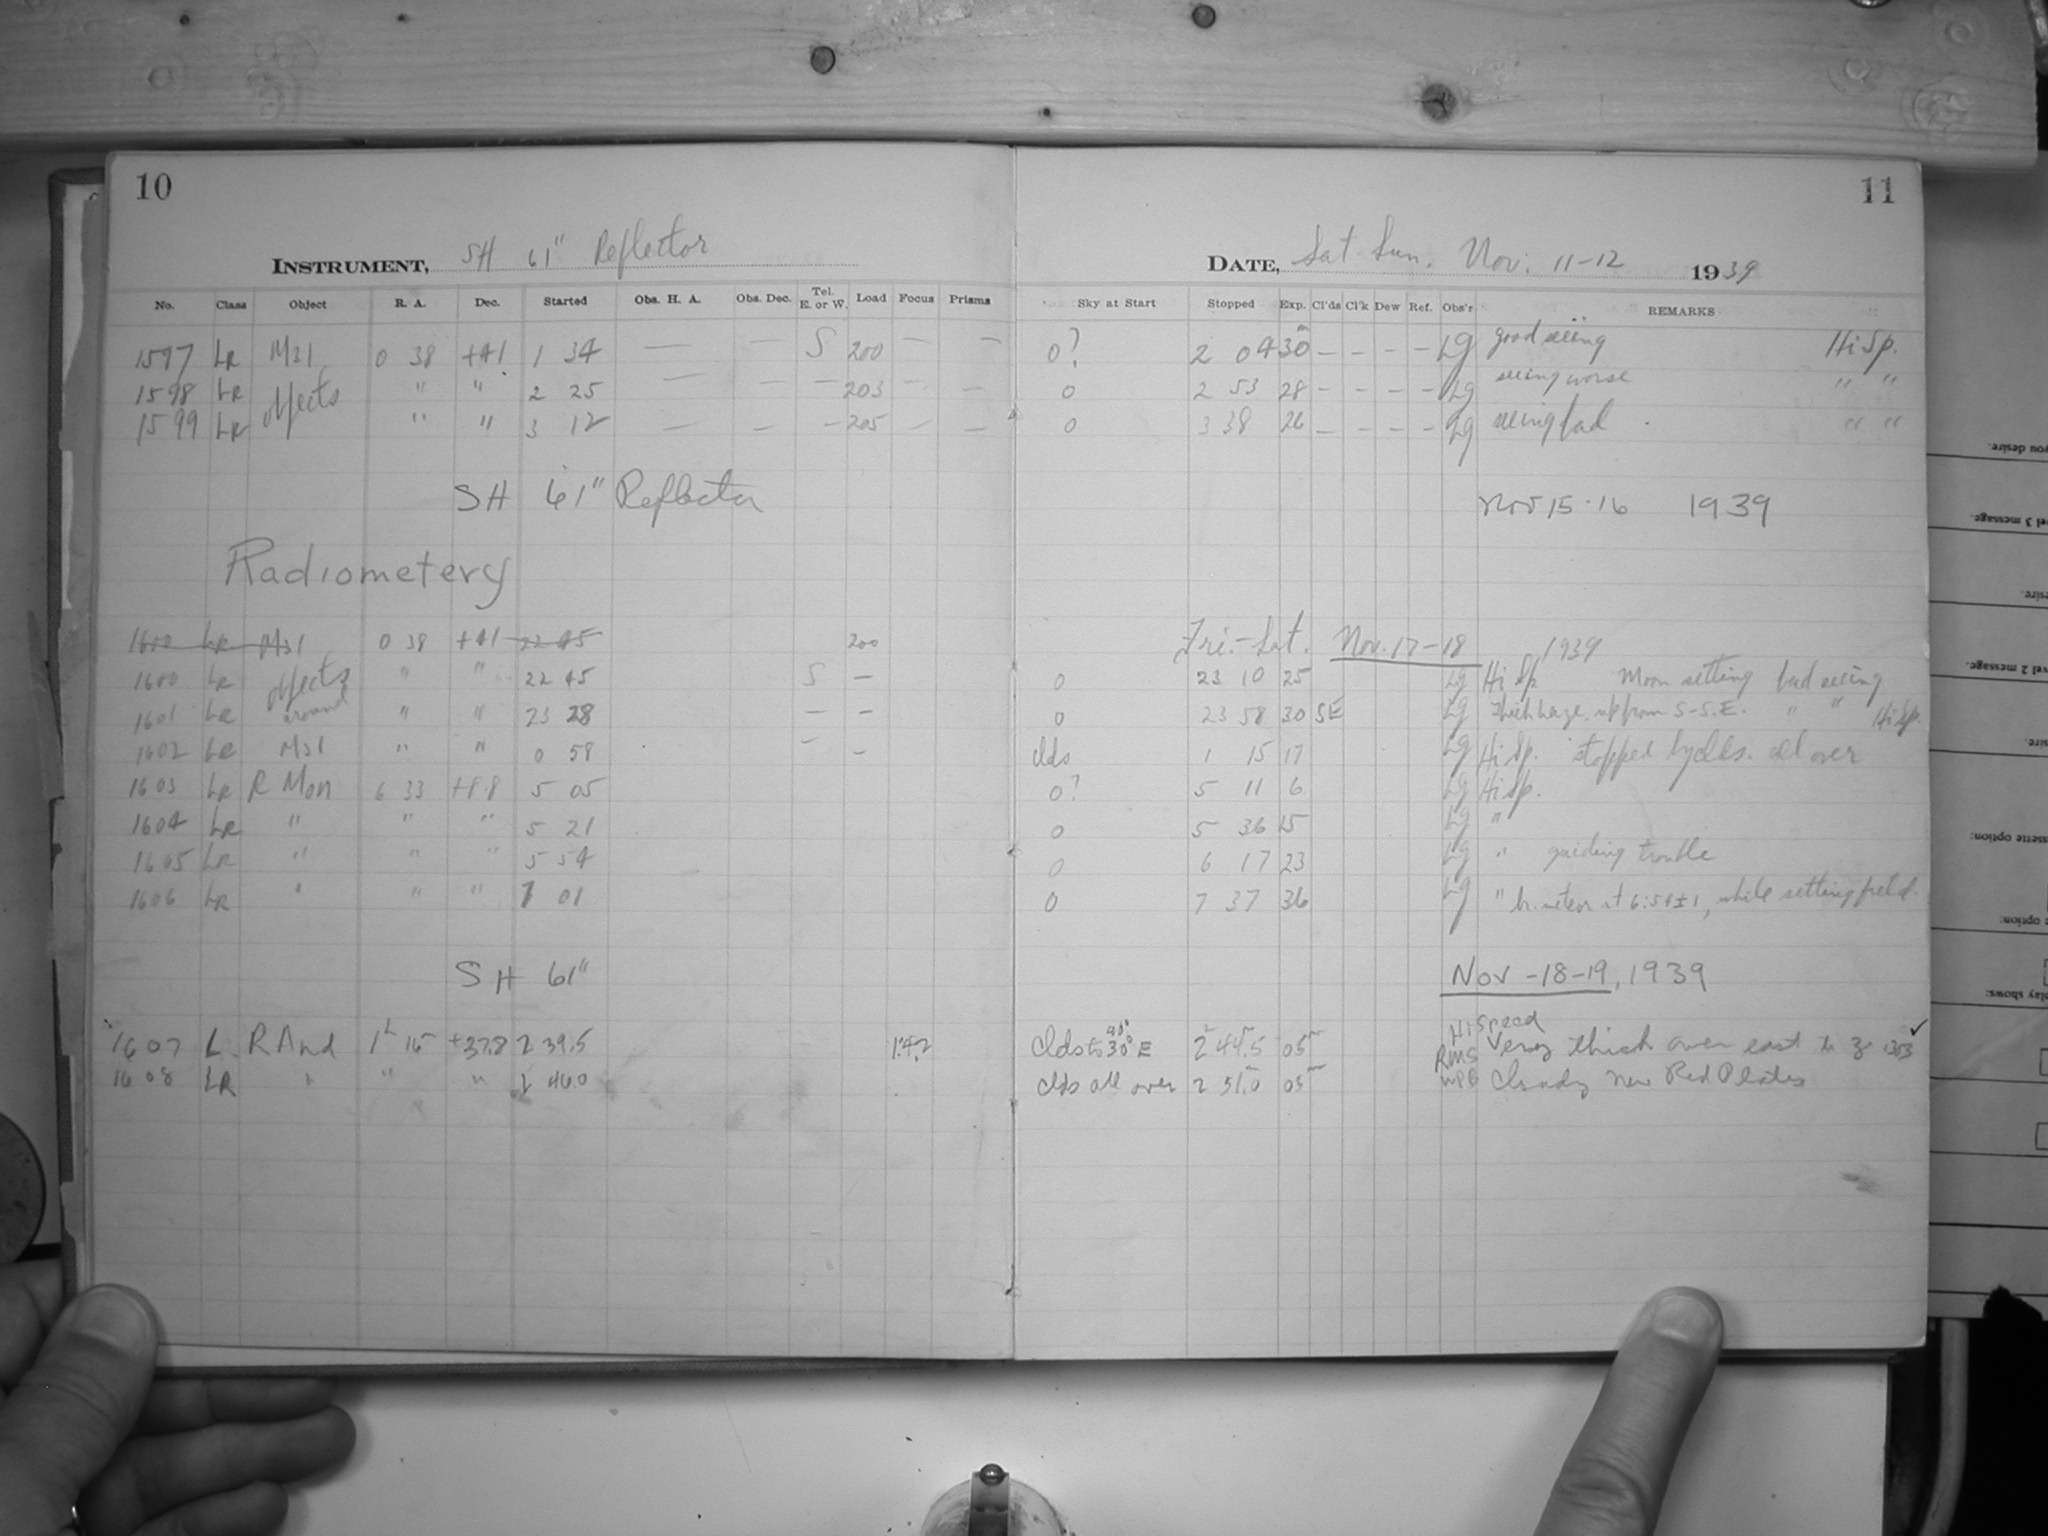 10
11
INSTRUMENT, SH 61" Reflector
DATE, Sat-Sun. Nov. 11-12 1939
No. Class Object R. A. Dec. Started Obs. H. A. Obs. Dec. Tel. E. or W. Load Focus Prisms Sky at Start Stopped Exp. Cl'ds Cl'k Dew Ref. Obs'r REMARKS
1597 LR M31 0 38 +41 1 34 — — S 200 — — 0? 2 04 30 — — — — Lg good seeing Hi Sp.
1598 LR objects " " 2 25 — — — 203 — — 0 2 53 28 — — — — Lg seeing worse " "
1599 LR " " 3 12 — — — 205 — — 0 3 38 26 — — — — Lg seeing bad. " "
SH 61" Reflector Nov 15-16 1939
Radiometery
1600 LR M31 0 38 +41 22 45 200 Fri.-Sat. Nov. 17-18 1939
1600 LR objects " " 22 45 S — 0 23 10 25 Lg Hi Sp Moon setting bad seeing
1601 LR around " " 23 28 — — 0 23 58 30 SE Lg Thick haze up from S-S.E. " " Hi Sp.
1602 LR M31 " " 0 58 — — clds 1 15 17 Lg Hi Sp. stopped by clds. all over
1603 LR R Mon 6 33 +8.8 5 05 0? 5 11 6 Lg Hi Sp.
1604 LR " " " 5 21 0 5 36 15 Lg "
1605 LR " " " 5 54 0 6 17 23 Lg " guiding trouble
1606 LR " " " 7 01 0 7 37 36 Lg " br. meteor at 6:54±1, while setting field.
SH 61" Nov-18-19, 1939
1607 L R And 1h 15 +37.8 2 39.5 1.42 Clds to 30° E 2 44.5 05m RMS Hi Speed Very thick over east to
1608 LR " " " 2 46.0 clds all over 2 51.0 05m WPB Cloudy new Red Plates